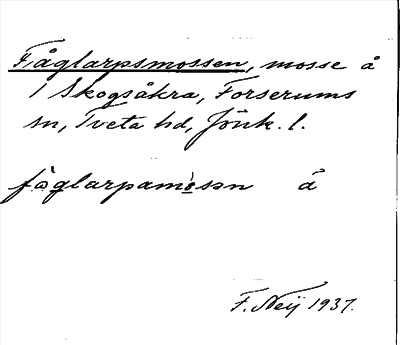 Fåglarpsmossen, mosse å
1 Skogsåkra, Forserums
sn, Tveta hd, Jönk. l.
fåglarpamòsən å
F. Neij 1937.